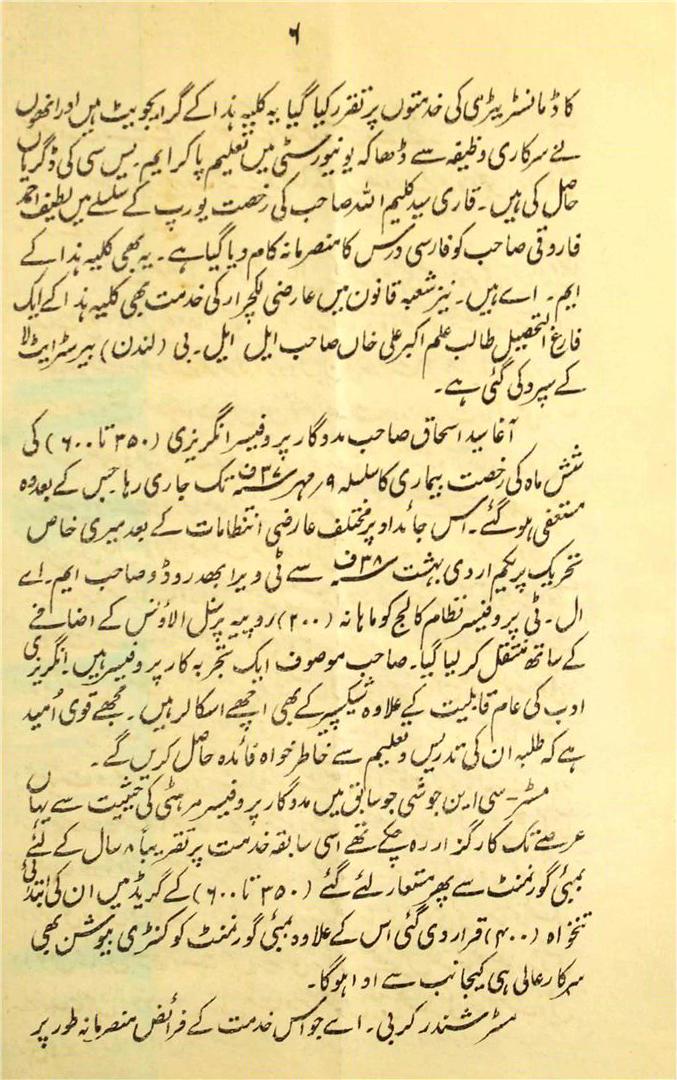 ۶
کا ڈمانسٹریٹری کی خدمتوں پر تقرر کیا گیا یہ کلیہ ہذا کے گرایجویٹ ہیں اور انھوں
نے سرکاری وظیفہ سے ڈھاکہ یونیورسٹی میں تعلیم پا کر ایم۔یس سی کی ڈگریاں
حاصل کی ہیں۔ قاری سید کلیم اللہ صاحب کی رخصت یورپ کے سلسلے میں لطیف احمد
فاروقی صاحب کو فارسی درس کا منصرمانہ کام دیا گیا ہے۔ یہ بھی کلیہ ہذا کے
ایم۔ اے ہیں۔ نیز شعبہ قانون میں عارضی لکچرار کی خدمت بھی کلیہ ہذا کے ایک
فارغ التحصیل طالب علم اکبر علی خاں صاحب ایل ایل۔ بی (لندن) بیرسٹر ایٹ لا
کے سپرد کی گئی ہے۔
آغا سید اسحاق صاحب مددگار پروفیسر انگریزی (۳۵۰ تا ۶۰۰) کی
شش ماہ کی رخصت بیماری کا سلسلہ ۹؍ مہر ۳۷ف تک جاری رہا جس کے بعد وہ
مستعفی ہو گئے۔ اس جائداد پر مختلف عارضی انتظامات کے بعد میری خاص
تحریک پر یکم اردی بہشت ۳۸ف سے ٹی ویرا بھدروڈو صاحب ایم۔اے
ال۔ٹی پروفیسر نظام کالج کو ماہانہ (۲۰۰) روپیہ پرسنل الاؤنس کے اضافے
کے ساتھ منتقل کر لیا گیا۔ صاحب موصوف ایک تجربہ کار پروفیسر ہیں۔ انگریزی
ادب کی عام قابلیت کے علاوہ شیکسپیر کے بھی اچھے اسکالر ہیں۔ مجھے قوی اُمید
ہے کہ طلبہ ان کی تدریس و تعلیم سے خاطر خواہ فائدہ حاصل کریں گے۔
مسٹر۔سی این جوشی جو سابق میں مددگار پروفیسر مرہٹی کی حیثیت سے یہاں
عرصے تک کارگزار رہ چکے تھے اسی سابقہ خدمت پر تقریباً ۸ سال کے لئے
بمبئی گورنمنٹ سے پھر مستعار لئے گئے (۳۵۰ تا ۶۰۰) کے گریڈ میں ان کی ابتدائی
تنخواہ (۴۰۰) قرار دی گئی اس کے علاوہ بمبئی گورنمنٹ کو کنٹری بیوشن بھی
سرکار عالی ہی کیجانب سے ادا ہوگا۔
مسٹر شندر کر بی۔ اے جو اس خدمت کے فرائض منصرمانہ طور پر